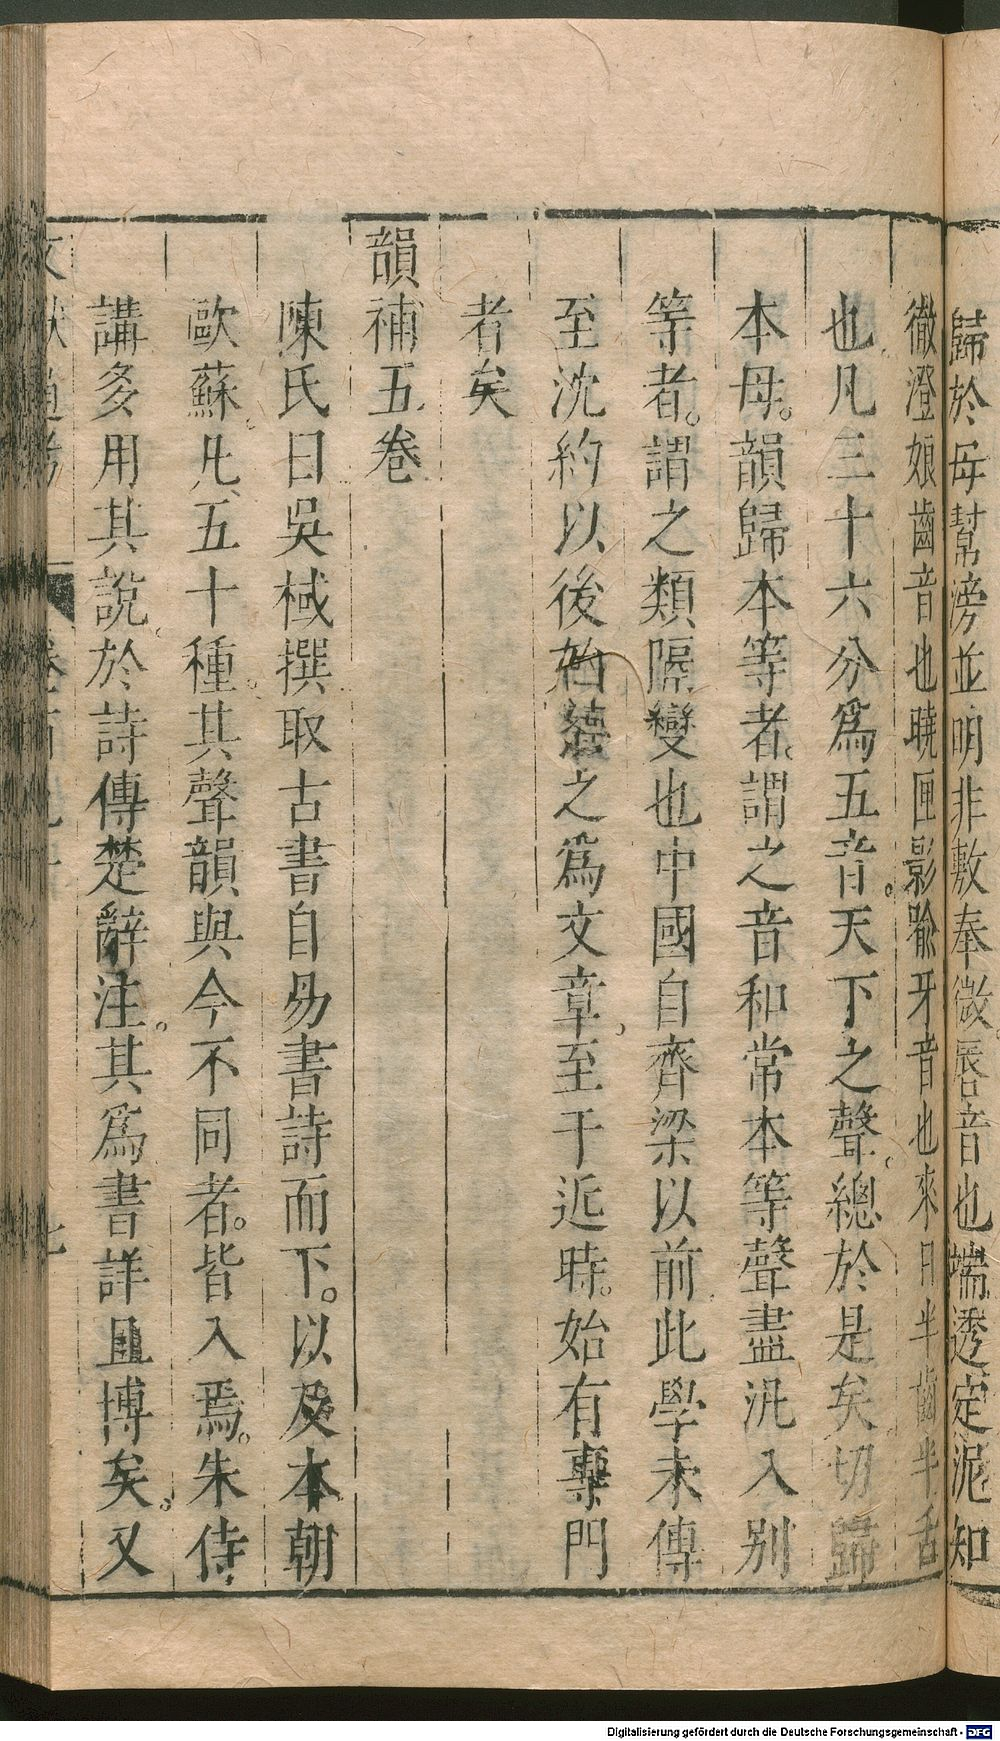 歸於母幫滂並明非敷奉微唇音也端透定泥知
徹澄娘齒音也曉匣影喻牙音也來日半齒半舌
也凡三十六分爲五音。天下之聲。總於是矣切歸
本母。韻歸本等者。謂之音和常本等聲盡汎入別
等者。謂之類隔變也中國自齊梁以前此學未傳
至沈約以後始之爲文章。至于近時。始有專門
者矣
韻補五卷
陳氏曰吳棫撰取古書自易書詩而下。以及本朝
歐蘇。凡五十種。其聲韻與今不同者。皆入焉。朱侍
講多用其說。於詩傳楚辭注。其爲書詳且博矣。又
Digitalisierung gefördert durch die Deutsche Forschungsgemeinschaft - DFG